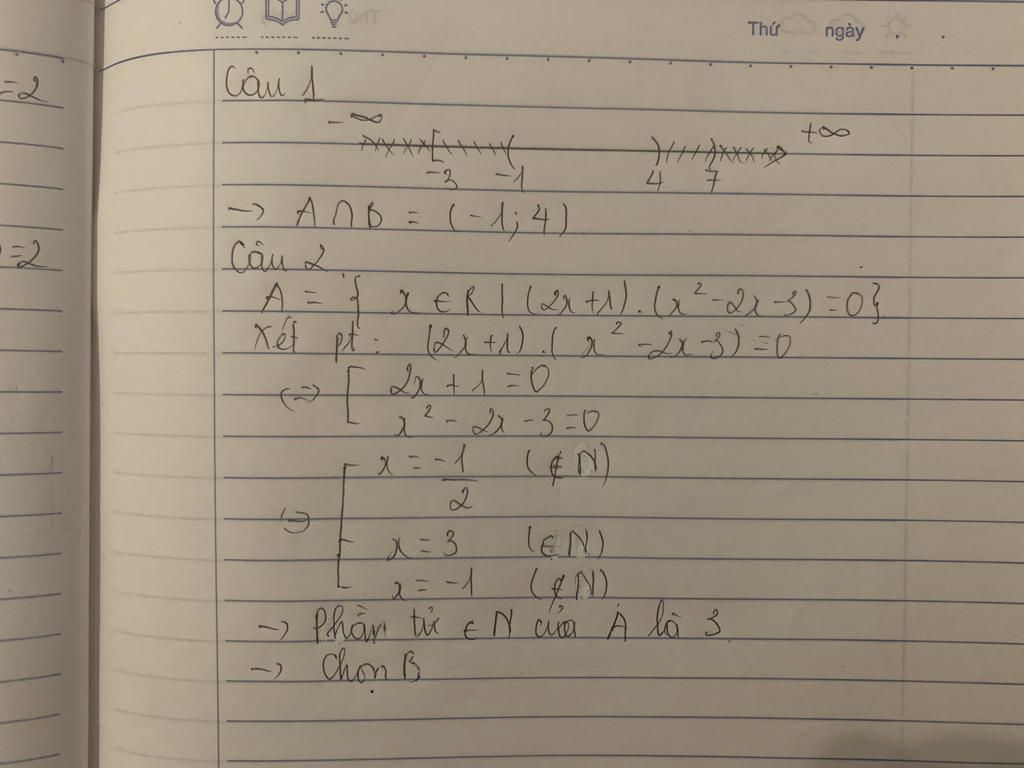 Thứ ngày
=2
Câu 1
-∞ +∞
-3 -1 4 7
→ A∩B = (-1; 4)
=2
Câu 2
A = { x ∈ R | (2x+1).(x²-2x-3)=0}
Xét pt: (2x+1).(x²-2x-3)=0
(=) [ 2x + 1 = 0
x² - 2x - 3 = 0
x = -1/2 (∉ N)
(=) x = 3 (∈ N)
x = -1 (∉ N)
→ Phần tử ∈ N của A là 3
→ Chọn B